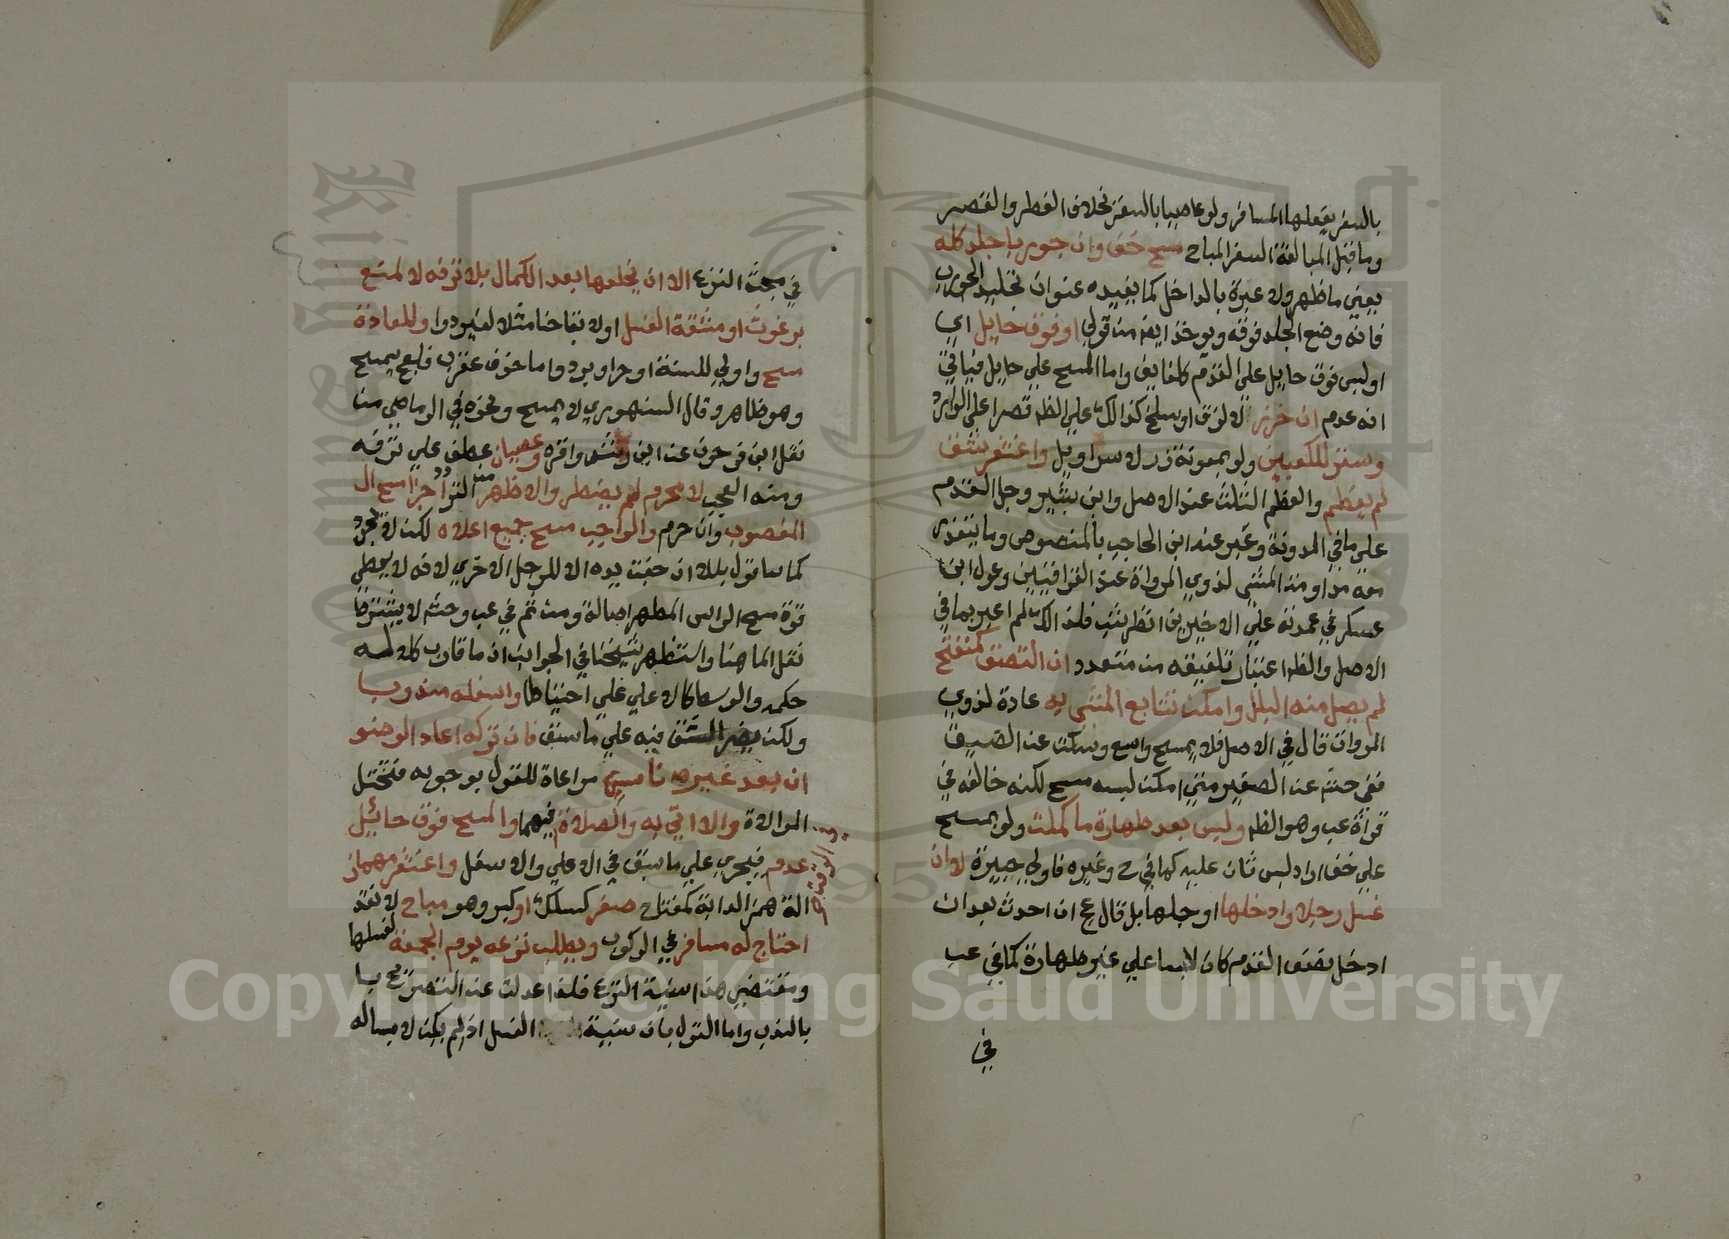 بالسفر يفعلها المسافر ولو عاصيا بالسفر بخلاف الفطر والقصر
وما قبل المبالغة السفر المباح مسح خف وان جورب باجلد كله
يعني ما ظهر ولا عبرة بالداخل كما يفيده عنوان تجليد الجورب
فانه وضع الجلد فوقه ويوخذ ايضا من قولي او فوق حايل اي
او لبس فوق حايل على القدم كلفايف واما المسح على حايل فياتي
انه عدم ان خرز لا لزق او سلخ كذلك على الظ قصرا على الوارد
وستر للكعبين ولو بمعونة زر لا سراويل واغتفر شقف
لم يعظم والعظم الثلث عند الاصل وابن بشير وجل القدم
على ما في المدونة وعبر عنه ابن الحاجب بالمنصوص وما يتعذر
معه مداومة المشي لذوي المرواة عند العراقيين وعول ابن
عسكر في عمدته على الاخيرين انظر تت فلذلك لم اعبر بما في
الاصل والظ اعتبار تلفيقه من متعدد ان التصق كمنفتح
لم يصل منه البلل وامكن تتابع المشي به عادة لذوي
المروات قال في الاصل فلا يمسح واسع وسكت عن الضيق
ففي حش عن الصغير متي امكن لبسه مسح لكنه خالفه في
قراة عب وهو الظ ولبس بعد طهارة ما كملت ولو بمسح
على خف اراد لبس ثان عليه كما في ح وغيره فاولى جبيرة لا ان
غسل رجلا وادخلها او جلها بل قال عج ان احدث بعد ان
ادخل بعض القدم كان لابسا على غير طهارة كما في عب
في
في مبحث النزع الا ان يخلعها بعد الكمال بلا ترفه لا لمنع
برغوث او مشقة الغسل اولا نفاخنا مثلا لغير دوا وللعادة
مسح واولى للسنة او حر او برد واما خوف عقرب فلعج يمسح
وهو ظاهر وقال السنهوري لا يمسح ونحوه في الرماصي من
نقل ابن فرحون عن ابن رشد واقره وعصيان عطف على ترفه
ومنه العجب لا محرم لم يضطر والاظهر من التردد اجزا مسح ال
المغصوب وان حرم والواجب مسح جميع اعلاه لكن لا تجد
كما سا نقول بلل ان جفت يده الا للرجل الاخرى لانه لا يعطى
قوة مسح الراس المطهر اصالة ومن ثم في عب وحش لا يشترط
نقل الما هنا واستظهر شيخنا في الجوانب ان ما قارب كله له
حكمه والوسط كالاعلى على احتياطا واسفله مندوب
ولكن يضر الشق فيه على ما سبق فان تركه اعاد الوضو
ان بعد غيره ناسي مراعاة للقول بوجوبه فتختل
الموالاة والا اتى به والصلاة فيهما والمسح فوق حائيل
عدم فيجري على ما سبق في الاعلى والاسفل واغتفر مهماز
الة همز الدابة كمفتاح صغر كسلك او كبر وهو مباح لا نقد
احتاج له مسافر في الركوب ويطلب نزعه يوم الجمعة لغسلها
ومقتضى هذا سنية النزع فلذا عدلت عن التصريح با
بالندب واما القول بان سنية الغسل اذ لم يكن لا بساله